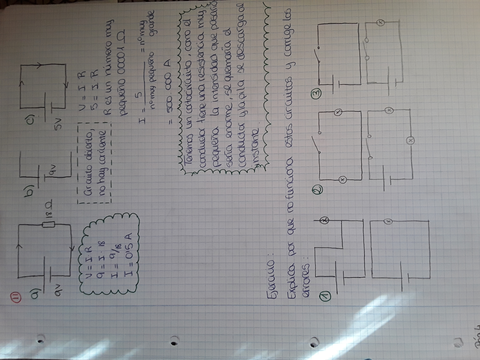 11
a)
9V
18 Ω
V = I R
9 = I · 18
I = 9/18
I = 0'5 A
b)
9V
Circuito abierto,
no hay corriente
c)
5V
V = I R
5 = I R
R es un número muy
pequeño 0'00001 Ω
I = 5 / nº muy pequeño = nº muy grande
= 500 000 A
Tenemos un cortocircuito, como el
conductor tiene una resistencia muy
pequeña la intensidad que pasaría
sería enorme, se quemaría el
conductor y la pila se descarga al
instante
Ejercicio:
Explica por que no funciona estos circuitos y corrige los
errores.
1
2
3